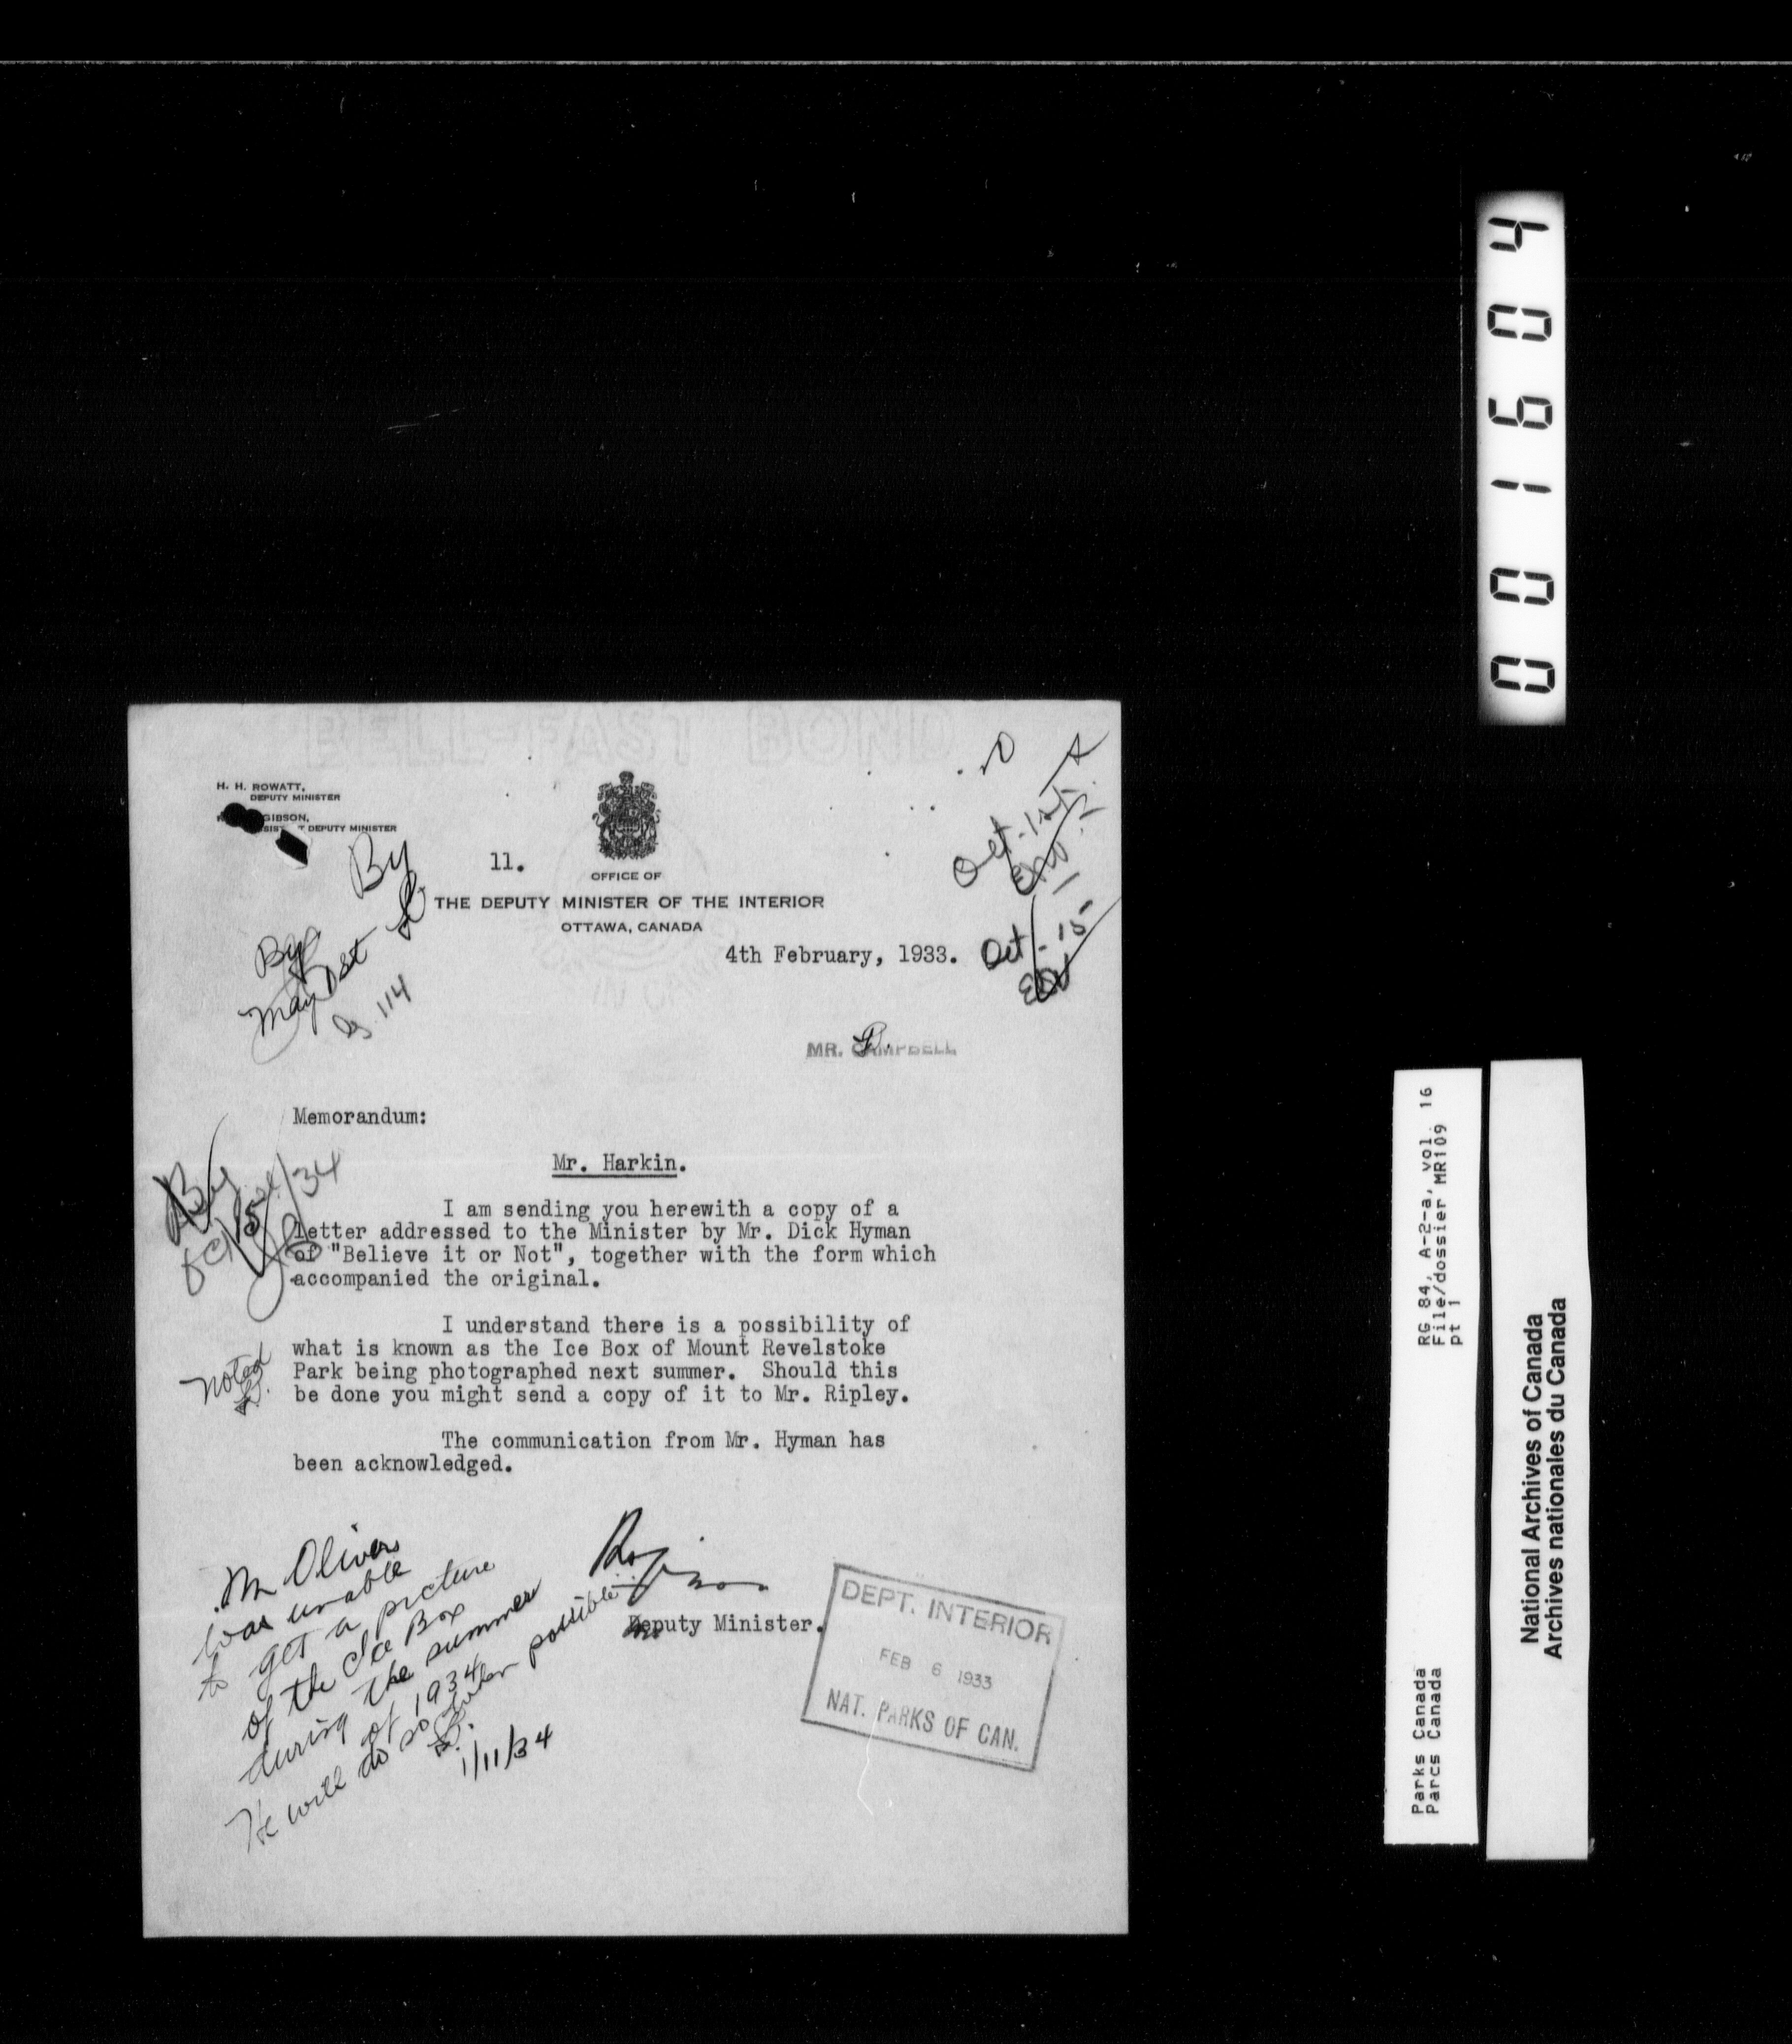 BELL-FAST BOND
H. H. ROWATT,
DEPUTY MINISTER
GIBSON,
DEPUTY MINISTER
11.
OFFICE OF
THE DEPUTY MINISTER OF THE INTERIOR
OTTAWA, CANADA
4th February, 1933.
Oct. 15
By
By
May 1st
114
MR. CAMPBELL
Memorandum:
Mr. Harkin.
I am sending you herewith a copy of a
letter addressed to the Minister by Mr. Dick Hyman
of "Believe it or Not", together with the form which
accompanied the original.
I understand there is a possibility of
what is known as the Ice Box of Mount Revelstoke
Park being photographed next summer.  Should this
be done you might send a copy of it to Mr. Ripley.
The communication from Mr. Hyman has
been acknowledged.
Noted
Deputy Minister.
Mr Olivers
was unable
to get a picture
of the Ice Box
during the summer
of 1934
He will do so when possible
1/11/34
DEPT. INTERIOR
FEB 6 1933
NAT. PARKS OF CAN.
001604
RG 84, A-2-a, vol. 16
File/dossier MR109
pt 1
Parks Canada
Parcs Canada
National Archives of Canada
Archives nationales du Canada